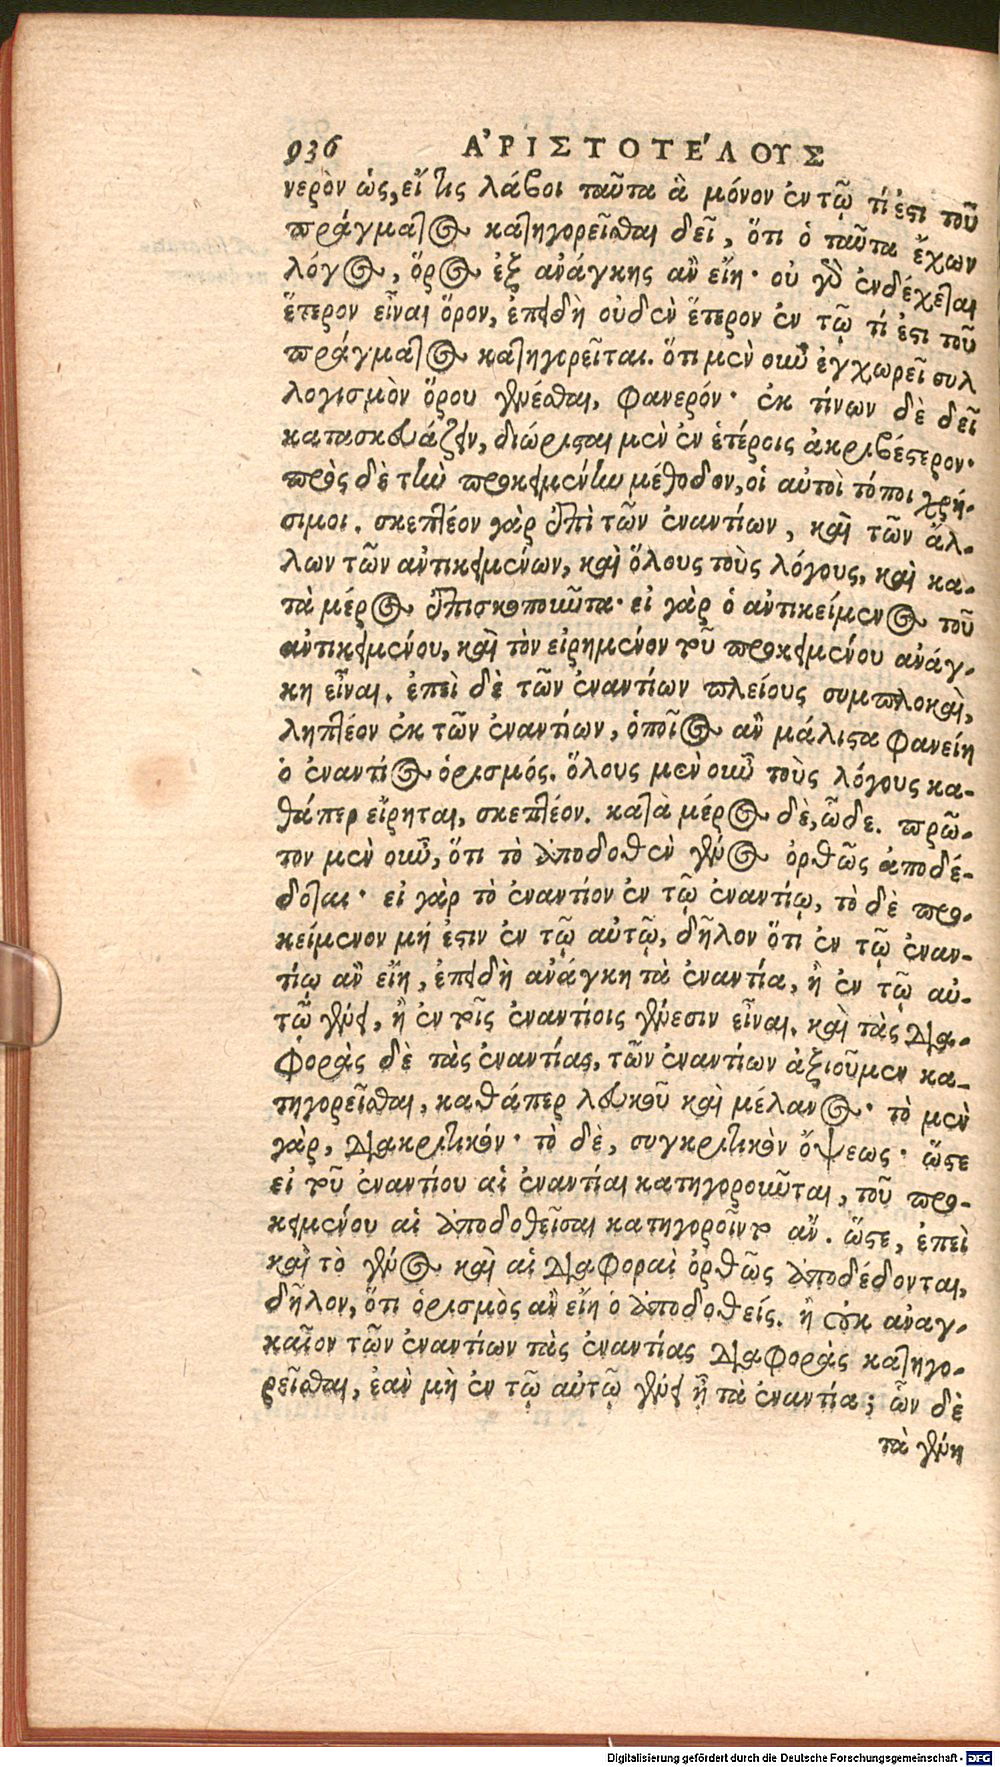 936 ἈΡΙΣΤΟΤΈΛΟΥΣ
νερὸν ὡς, εἴ τις λάβοι ταῦτα ἃ μόνον ἐν τῷ τί ἐστι τοῦ
πράγματος κατηγορεῖσθαι δεῖ, ὅτι ὁ ταῦτα ἔχων
λόγος, ὅρος ἐξ ἀνάγκης ἂν εἴη· οὐ γὰρ ἐνδέχεται
ἕτερον εἶναι ὅρον, ἐπειδὴ οὐδὲν ἕτερον ἐν τῷ τί ἐστι τοῦ
πράγματος κατηγορεῖται. ὅτι μὲν οὖν ἐγχωρεῖ συλ
λογισμὸν ὅρου γενέσθαι, φανερόν· ἐκ τίνων δὲ δεῖ
κατασκευάζειν, διώρισται μὲν ἐν ἑτέροις ἀκριβέστερον·
πρὸς δὲ τὴν προκειμένην μέθοδον, οἱ αὐτοὶ τόποι χρή-
σιμοι. σκεπτέον γὰρ ἐπὶ τῶν ἐναντίων, καὶ τῶν ἄλ-
λων τῶν ἀντικειμένων, καὶ ὅλους τοὺς λόγους, καὶ κα-
τὰ μέρος ἐπισκοποῦντα· εἰ γὰρ ὁ ἀντικείμενος τοῦ
ἀντικειμένου, καὶ τὸν εἰρημένον τοῦ προκειμένου ἀνάγ-
κη εἶναι. ἐπεὶ δὲ τῶν ἐναντίων πλείους συμπλοκαὶ,
ληπτέον ἐκ τῶν ἐναντίων, ὁποῖος ἂν μάλιστα φανείη
ὁ ἐναντίος ὁρισμός. ὅλους μὲν οὖν τοὺς λόγους κα-
θάπερ εἴρηται, σκεπτέον. κατὰ μέρος δὲ, ὧδε. πρῶ-
τον μὲν οὖν, ὅτι τὸ ἀποδοθὲν γένος ὀρθῶς ἀποδέ-
δοται· εἰ γὰρ τὸ ἐναντίον ἐν τῷ ἐναντίῳ, τὸ δὲ προ-
κείμενον μή ἐστιν ἐν τῷ αὐτῷ, δῆλον ὅτι ἐν τῷ ἐναν-
τίῳ ἂν εἴη, ἐπειδὴ ἀνάγκη τὰ ἐναντία, ἢ ἐν τῷ αὐ-
τῷ γένει, ἢ ἐν τοῖς ἐναντίοις γένεσιν εἶναι. καὶ τὰς δια-
φορὰς δὲ τὰς ἐναντίας, τῶν ἐναντίων ἀξιοῦμεν κα-
τηγορεῖσθαι, καθάπερ λευκοῦ καὶ μέλανος· τὸ μὲν
γὰρ, διακριτικόν· τὸ δὲ, συγκριτικὸν ὄψεως· ὥστε
εἰ τοῦ ἐναντίου αἱ ἐναντίαι κατηγοροῦνται, τοῦ προ-
κειμένου αἱ ἀποδοθεῖσαι κατηγοροῖντο ἄν. ὥστε, ἐπεὶ
καὶ τὸ γένος καὶ αἱ διαφοραὶ ὀρθῶς ἀποδέδονται,
δῆλον, ὅτι ὁρισμὸς ἂν εἴη ὁ ἀποδοθείς. ἢ οὐκ ἀναγ-
καῖον τῶν ἐναντίων τὰς ἐναντίας διαφορὰς κατηγο-
ρεῖσθαι, ἐὰν μὴ ἐν τῷ αὐτῷ γένει ᾖ τὰ ἐναντία; ὧν δὲ
τὰ γένη
Digitalisierung gefördert durch die Deutsche Forschungsgemeinschaft - DFG